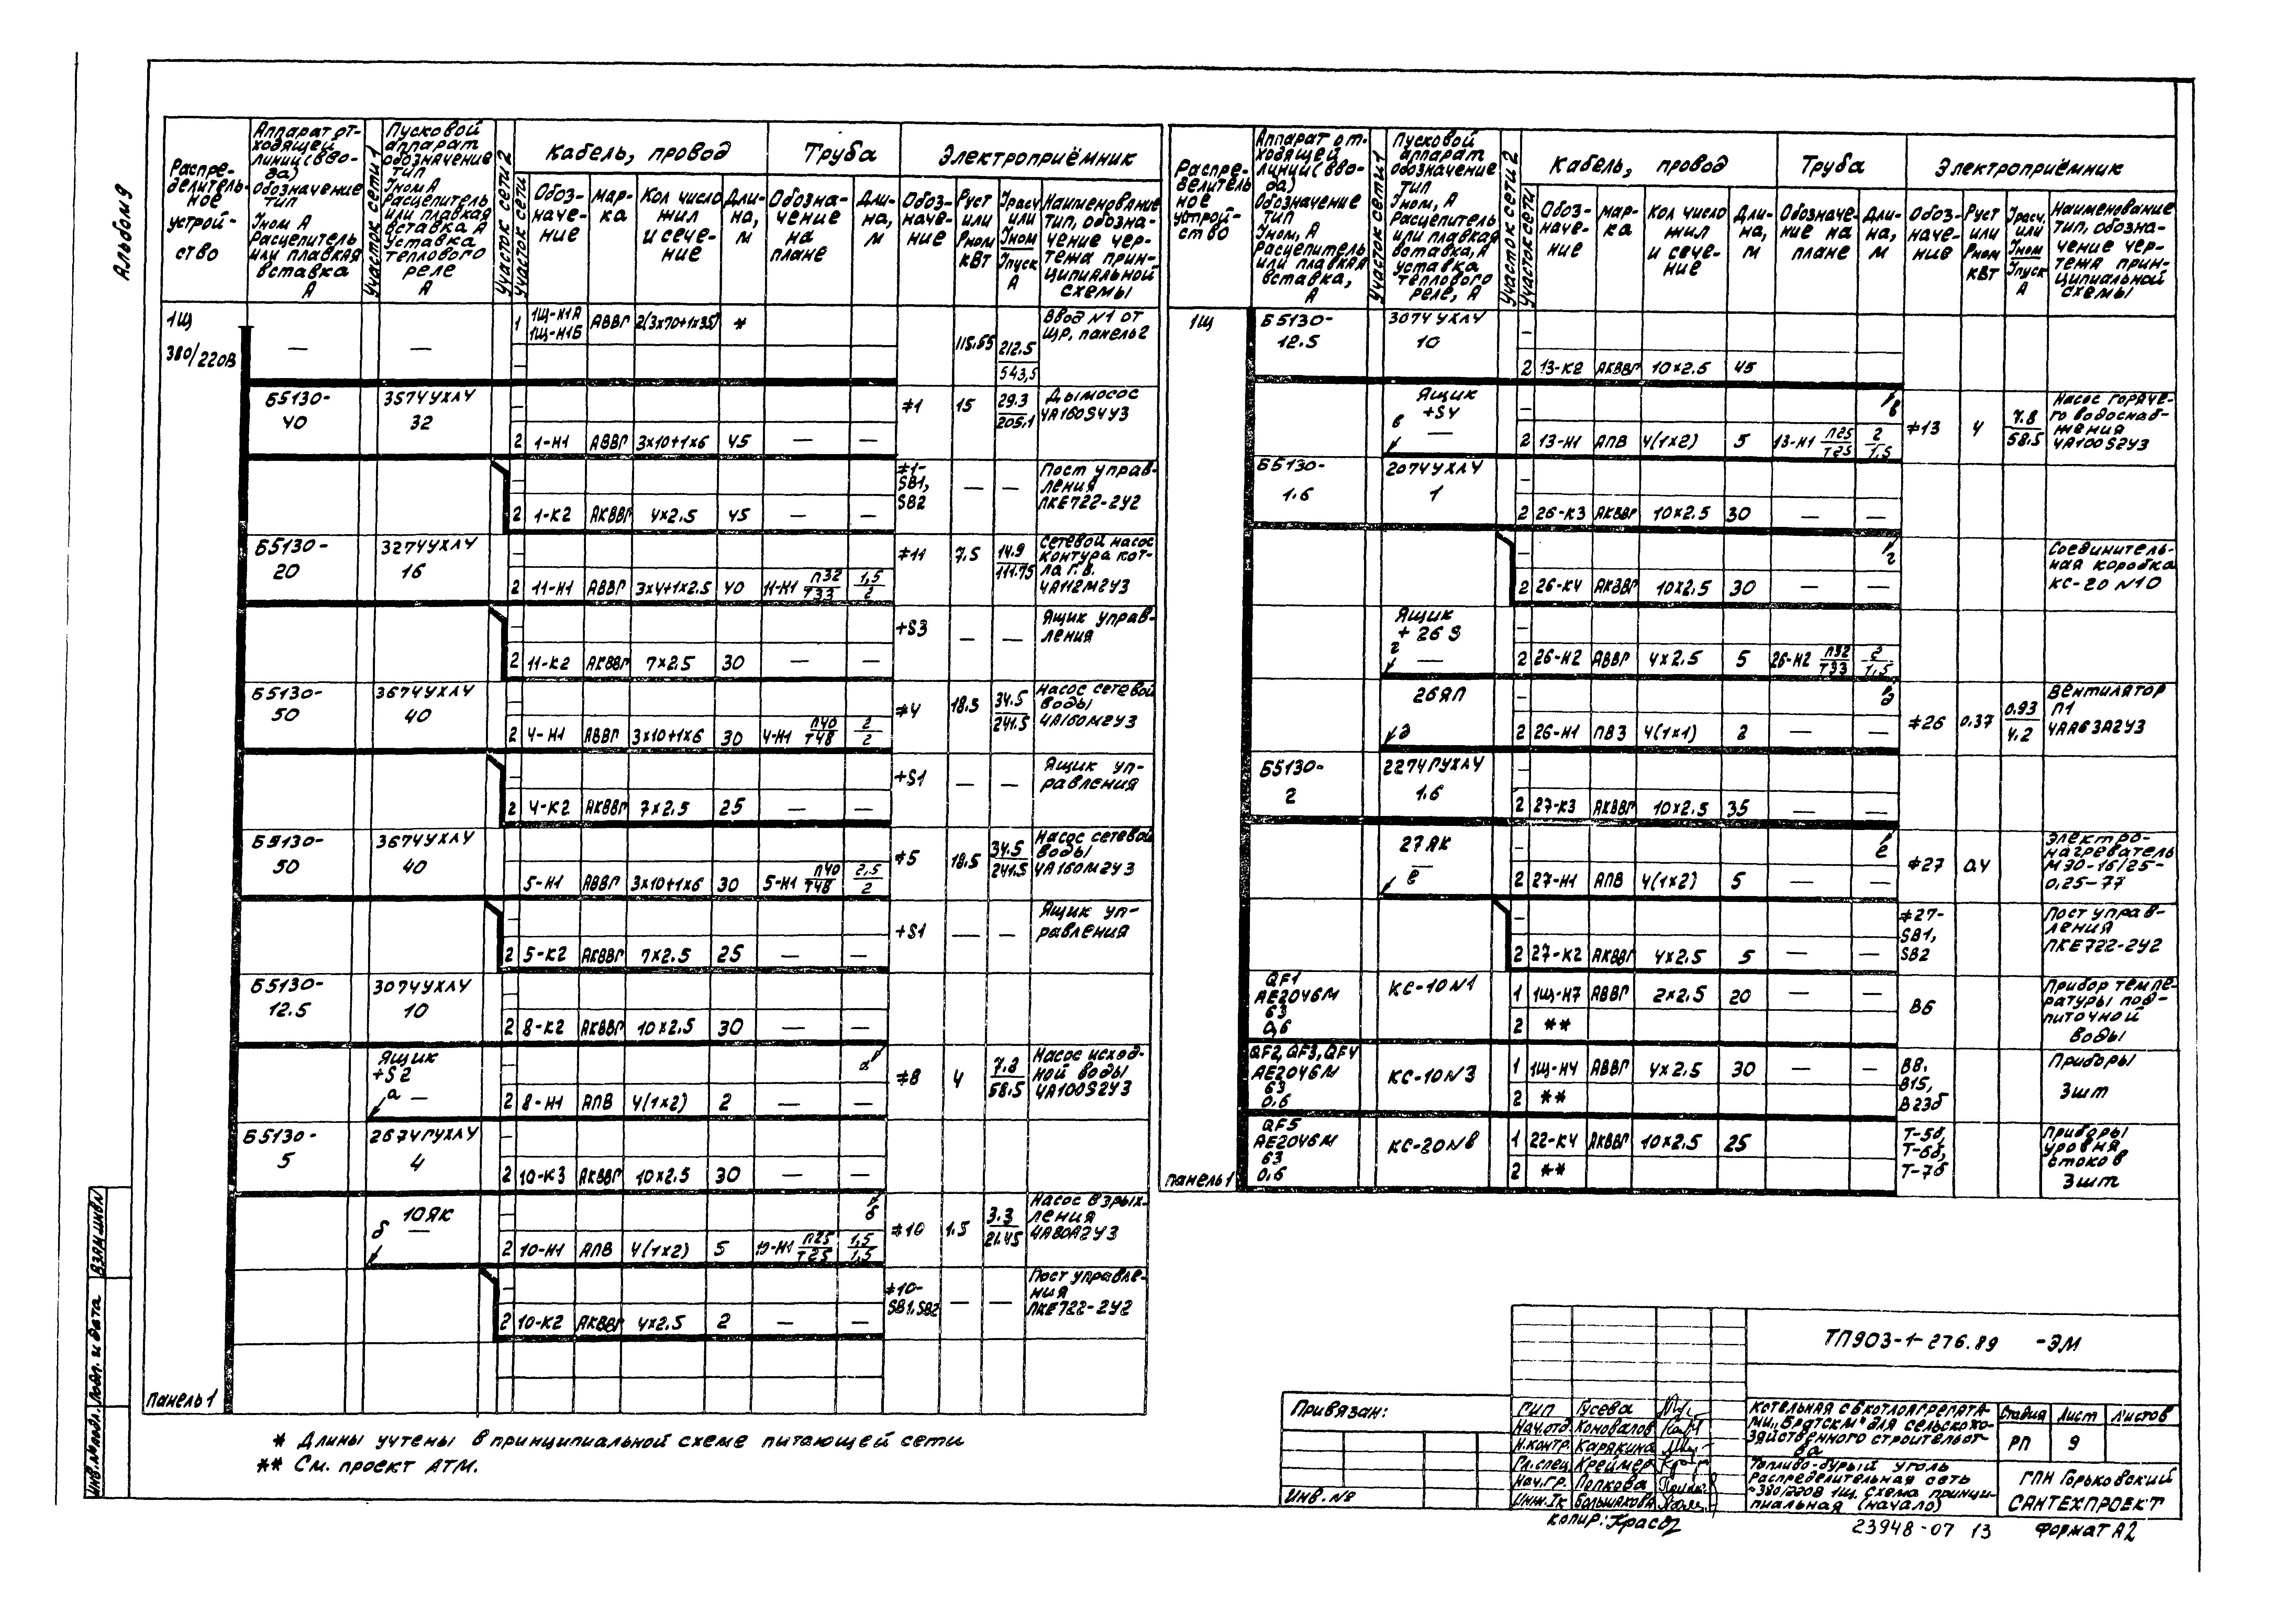 Альбом 9
Распре-
делитель-
ное
устрой-
ство
Аппарат от-
ходящей
линии (вво-
да)
Обозначение
тип
Iном А
Расцепитель
или плавкая
вставка
А
Участок сети 1
Пусковой
аппарат
обозначение
тип
Iном А
Расцепитель
или плавкая
вставка А
Уставка
теплового
реле
А
Участок сети 2
Участок сети
Кабель, провод
Обоз-
наче-
ние
Мар-
ка
Кол число
жил
и сече-
ние
Дли-
на,
м
Труба
Обозна-
чение
на
плане
Дли-
на,
м
Электроприёмник
Обоз-
наче-
ние
Руст
или
Рном
кВт
Iрасч
или
Iном
Iпуск
А
Наименование
тип, обозна-
чение чер-
тежа прин-
ципиальной
схемы
1Щ
380/220В
— — 1 1Щ-Н1А
1Щ-Н1Б АВВГ 2(3х70+1х35) * 115.55 212.5/543,5 Ввод N1 от
ЩР, панель 2
Б5130-
40 3574УХЛ4
32 2 1-Н1 АВВГ 3х10+1х6 45 — — #1 15 29.3/205.1 Дымосос
4А160S4У3
2 1-К2 АКВВГ 4х2.5 45 — — #1-
SB1,
SB2 — — Пост управ-
ления
ПКЕ722-2У2
Б5130-
20 3274УХЛ4
16 2 11-Н1 АВВГ 3х4+1х2.5 40 11-Н1 П32/Т33 1,5/2 #11 7.5 14.9/111.75 Сетевой насос
контура кот-
ла г.в.
4А112М2У3
2 11-К2 АКВВГ 7х2.5 30 — — +S3 — — Ящик управ-
ления
Б5130-
50 3674УХЛ4
40 2 4-Н1 АВВГ 3х10+1х6 30 4-Н1 П40/Т48 2/2 #4 18.5 34.5/241.5 Насос сетевой
воды
4А160М2У3
2 4-К2 АКВВГ 7х2.5 25 — — +S1 — — Ящик уп-
равления
Б5130-
50 3674УХЛ4
40 5-Н1 АВВГ 3х10+1х6 30 5-Н1 П40/Т48 2,5/2 #5 18.5 34.5/241.5 Насос сетевой
воды
4А160М2У3
2 5-К2 АКВВГ 7х2.5 25 — — +S1 — — Ящик уп-
равления
Б5130-
12.5 3074УХЛ4
10 2 8-К2 АКВВГ 10х2.5 30 — —
Ящик
+S2
а — 2 8-Н1 АПВ 4(1х2) 2 — — а #8 4 7.8/58.5 Насос исход-
ной воды
4А100S2У3
Б5130-
5 2674ГУХЛ4
4 2 10-К3 АКВВГ 10х2.5 30 — —
10ЯК
б — 2 10-Н1 АПВ 4(1х2) 5 10-Н1 П25/Т25 1,5/1,5 б #10 1.5 3.3/21.45 Насос взрых-
ления
4А80А2У3
2 10-К2 АКВВГ 4х2.5 2 — — #10-
SB1.SB2 — — Пост управле-
ния
ПКЕ722-2У2
панель 1
* Длины учтены в принципиальной схеме питающей сети
** См. проект АТМ.
Распре-
делитель
ное
устрой-
ство
Аппарат от-
ходящей
линии (вво-
да)
Обозначение
тип
Iном, А
Расцепитель
или плавкая
вставка,
А
Участок сети 1
Пусковой
аппарат
обозначение
тип
Iном, А
Расцепитель
или плавкая
вставка, А
уставка
теплового
реле, А
Участок сети 2
Участок сети
Кабель, провод
Обоз-
наче-
ние
мар-
ка
Кол число
жил
и сече-
ние
Дли-
на,
м
Труба
Обозначе-
ние на
плане
Дли-
на,
м
Электроприёмник
Обоз-
наче-
ние
Руст
или
Рном
кВт
Iрасч.
или
Iном
Iпуск
А
Наименование
тип, обозна-
чение чер-
тежа прин-
ципиальной
схемы
1Щ Б5130-
12.5 3074УХЛ4
10 2 13-К2 АКВВГ 10х2.5 45
Ящик
+S4
в — 2 13-Н1 АПВ 4(1х2) 5 13-Н1 П25/Т25 2/1,5 в #13 4 7.8/58.5 Насос горяче-
го водоснаб-
жения
4А100S2У3
Б5130-
1.6 2074УХЛ4
1 2 26-К3 АКВВГ 10х2.5 30 — —
2 26-К4 АКВВГ 10х2.5 30 — — г Соединитель-
ная коробка
КС-20 N10
Ящик
+ 26 S
г — 2 26-Н2 АВВГ 4х2.5 5 26-Н2 П32/Т33 2/1,5
26ЯП
д 2 26-Н1 ПВ3 4(1х1) 2 — — д #26 0.37 0.93/4.2 Вентилятор
П1
4АА63А2У3
Б5130-
2 2274ГУХЛ4
1.6 2 27-К3 АКВВГ 10х2.5 35 — —
27ЯК
—
е 2 27-Н1 АПВ 4(1х2) 5 — — е #27 0.4 Электро-
нагреватель
МЭО-16/25-
0,25-77
2 27-К2 АКВВГ 4х2.5 5 — — #27-
SB1,
SB2 Пост управ-
ления
ПКЕ722-2У2
QF1
АЕ2046М
63
0,6 КС-10N1 1 1Щ-Н7 АВВГ 2х2.5 20 — —
2 ** В6 Прибор темпе-
ратуры под-
питочной
воды
QF2, QF3, QF4
АЕ2046М
63
0.6 КС-10N3 1 1Щ-Н4 АВВГ 4х2.5 30 — —
2 ** В8,
В15,
В23б Приборы
3шт
QF5
АЕ2046М
63
0.6 КС-20N8 1 22-К4 АКВВГ 10х2.5 25
2 ** Т-5б,
Т-6б,
Т-7б Приборы
уровня
стоков
3шт
панель 1
ТП903-1-276.89 -ЭМ
Привязан:
Инв. №
ГИП Гусева
Нач.отд. Коновалов
Н.контр. Карякина
Гл.спец Креймер
Нач.гр. Попкова
Инж.Iк Большакова
Котельная с 8 котлоагрегата-
ми „Братск-м“ для сельскохо-
зяйственного строительст-
ва
Топливо-бурый уголь
Распределительная сеть
~380/220В 1Щ. Схема принци-
пиальная (начало)
Стадия Лист Листов
РП 9
ГПИ Горьковский
САНТЕХПРОЕКТ
Копир:
23948-07 13 Формат А2
Взам инв N
Подп. и дата
Инв.№ подл.